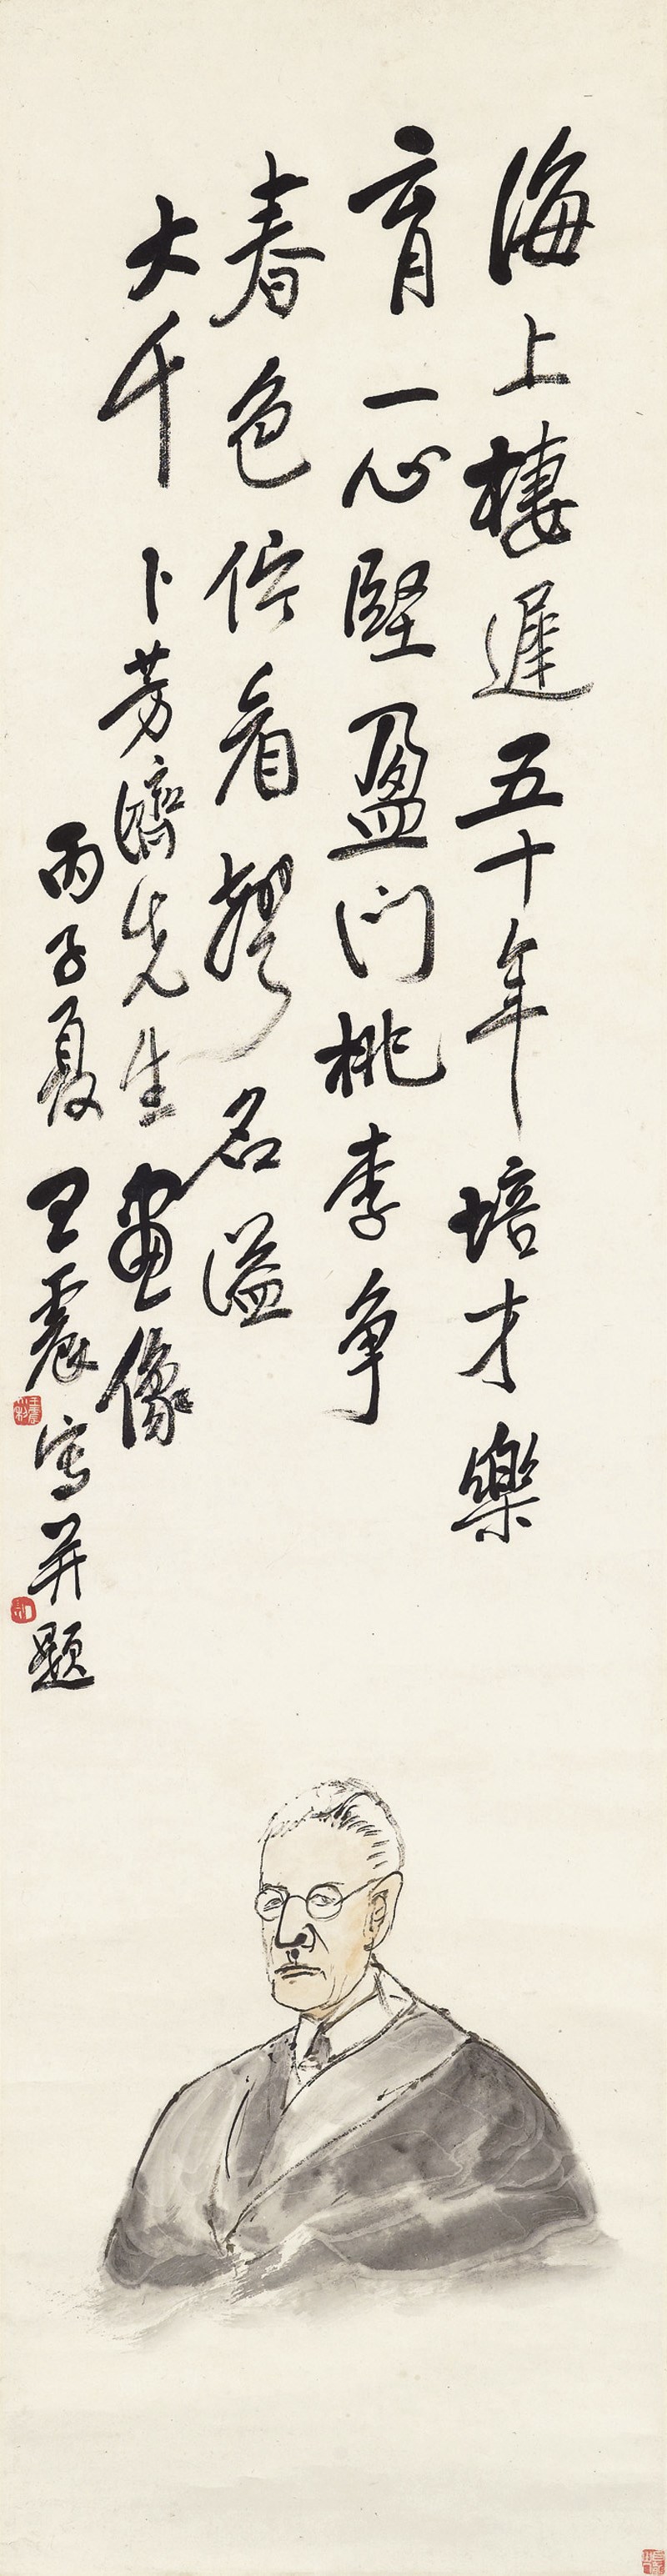 海上棲遲五十年培才樂
育一心堅盈门桃李争
春色佇看聲名溢
大千
卜芳濟先生畫像
丙子夏王震写并題